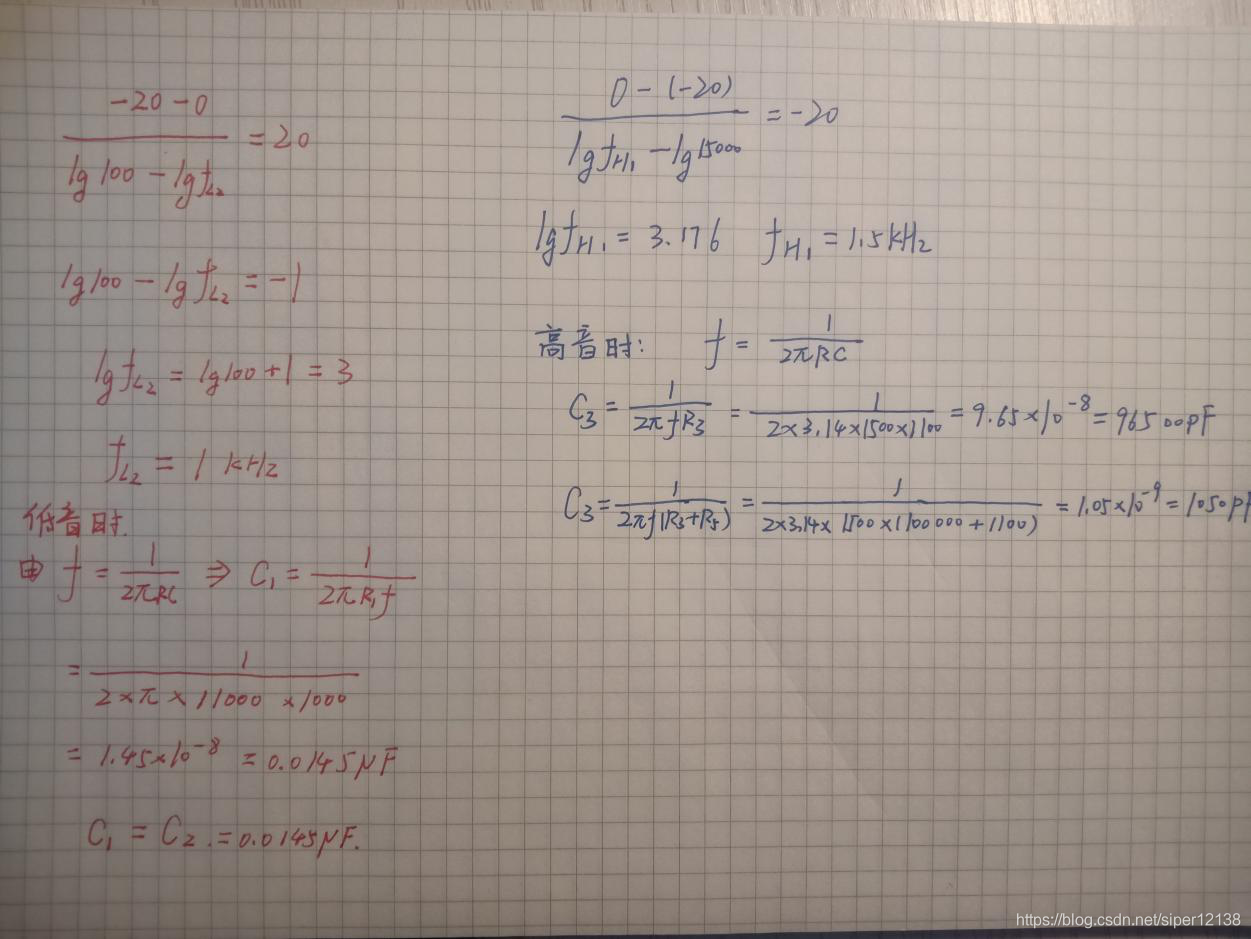 (-20-0)/(lg100-lgf_L2) = 20
lg100-lgf_L2 = -1
lgf_L2 = lg100+1 = 3
f_L2 = 1 kHz
低音时.
由 f = 1/(2πRC) ⇒ C₁ = 1/(2πR₁f)
= 1/(2×π×11000×1000)
= 1.45×10⁻⁸ = 0.0145μF
C₁ = C₂ = 0.0145μF.
(0-(-20))/(lgf_H1-lg15000) = -20
lgf_H1 = 3.176 f_H1 = 1.5kHz
高音时: f = 1/(2πRC)
C₃ = 1/(2πfR₃) = 1/(2×3.14×1500×1100) = 9.65×10⁻⁸ = 96500pF
C₃ = 1/(2πf(R₃+R₅)) = 1/(2×3.14×1500×(100000+1100)) = 1.05×10⁻⁹ = 1050pF
https://blog.csdn.net/siper12138